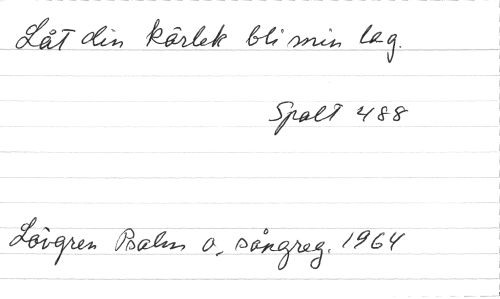 Låt din kärlek bli min lag.
Spalt 488
Lövgren Psalm o. sångreg. 1964